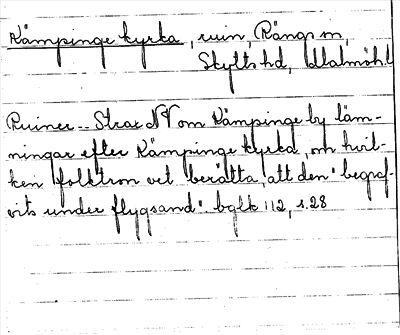 Kämpinge kyrka, ruin, Rängs sn,
Skytts hd, Malmöhl
Ruiner.- Strax NV om Kämpinge by läm-
ningar efter Kämpinge kyrka, om hvil-
ken folktron vet berätta, att den "begraf-
vits under flygsand". bglk :12, s.28